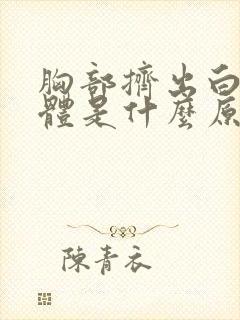 胸部擠出白
體是什麼原
陳青衣